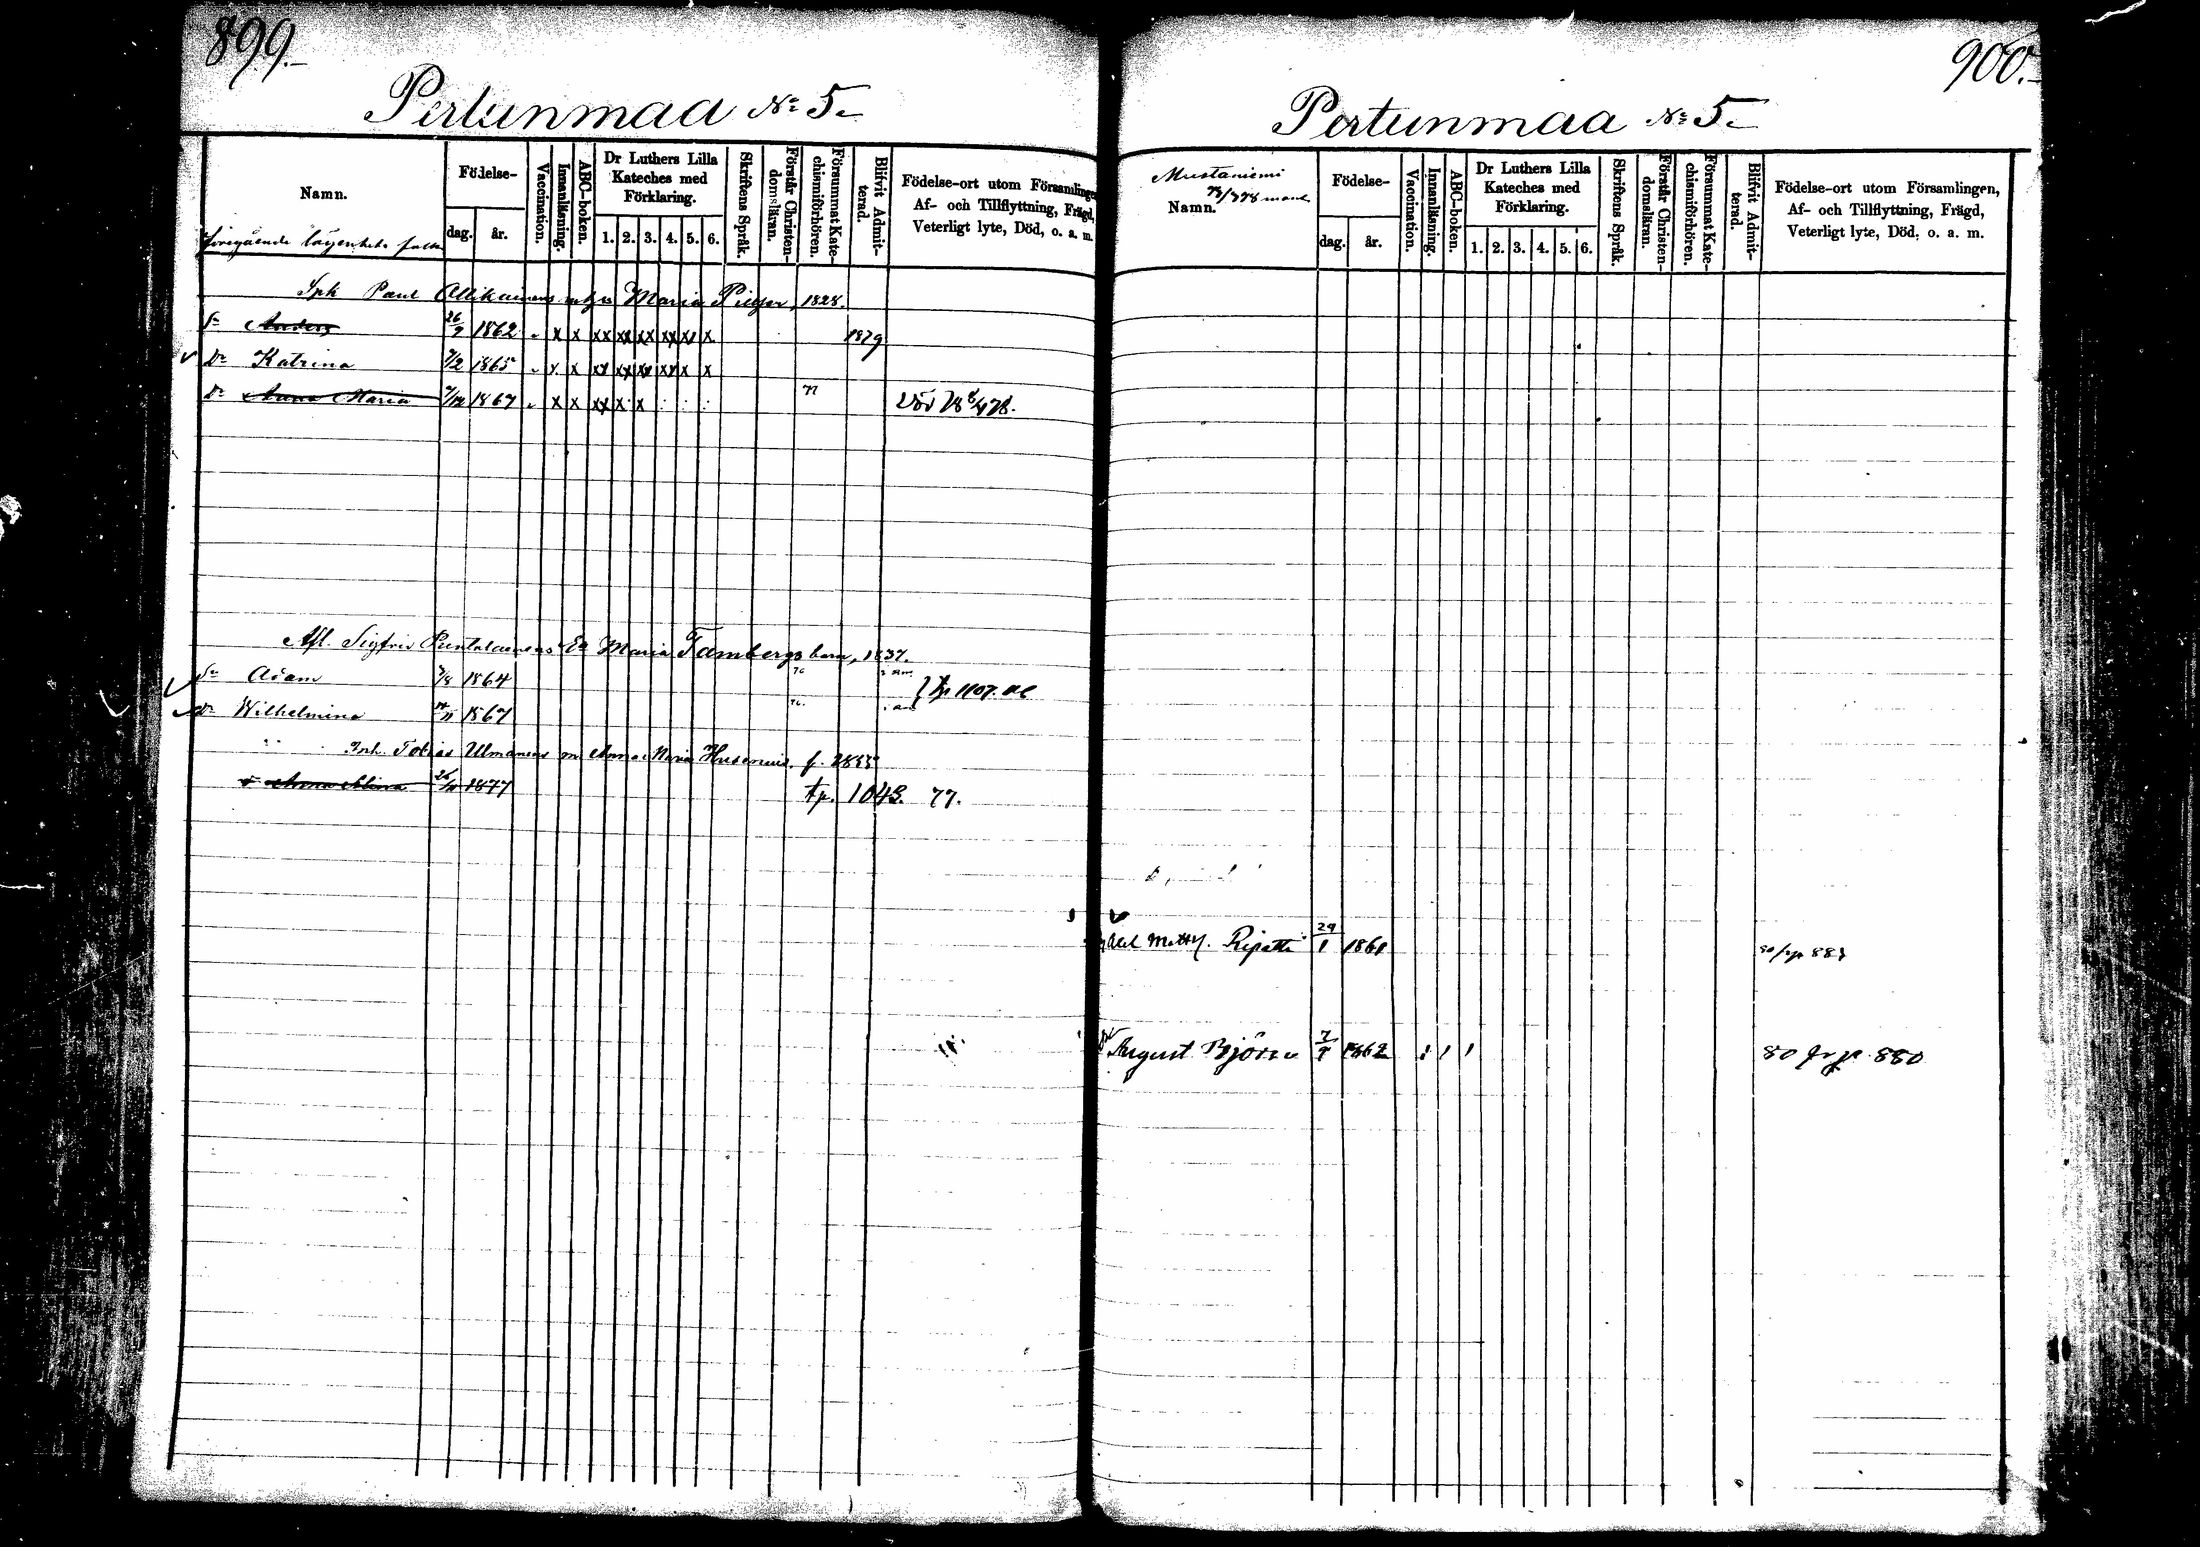 899.
Pertunmaa No 5.
Namn.
Födelse-
dag.
år.
Vaccination.
Innanläsning.
ABC-boken.
Dr Luthers Lilla
Kateches med
Förklaring.
1. 2. 3. 4. 5. 6.
Skriftens Språk.
Förstår Christen-
domsläran.
Försummat Kate-
chismiförhören.
Blifvit Admit-
terad.
Födelse-ort utom Församlingen,
Af- och Tillflyttning, Frägd,
Veterligt lyte, Död, o. a. m.
föregående lägenhets folk
Paul Ollikainens Maria 1828.
Sn Anders 26/9 1862 x x xx xx xx xx xx x 1879
Dr Katrina 7/2 1865 x x xx xx xx xx x x
Dr Anna Maria 1867 x x xx x x 77
Afl. Sigfrid Maria Tambergs barn, 1837.
Sn Adam 1864 76 1107.
Dr Wilhelmina 1867 76.
Inh. Tobias Ulmanens m Anna Maria
1877 tp. 1043. 77.
900.
Pertunmaa No 5
Mustaniemi
Namn.
Födelse-
dag.
år.
Vaccination.
Innanläsning.
ABC-boken.
Dr Luthers Lilla
Kateches med
Förklaring.
1. 2. 3. 4. 5. 6.
Skriftens Språk.
Förstår Christen-
domsläran.
Försummat Kate-
chismiförhören.
Blifvit Admit-
terad.
Födelse-ort utom Församlingen,
Af- och Tillflyttning, Frägd,
Veterligt lyte, Död, o. a. m.
Ripatti 29/1 1861
August Björn 1862 80 fr p. 880